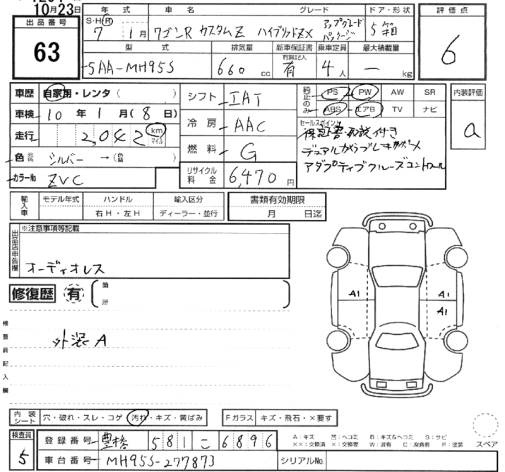 10月23日
出品番号
63
年式 車名 グレード ドア・形状
S・H・R 7年 1月 ワゴンR カスタムZ ハイブリッドZX アップグレードパッケージ 5ドア
評価点
6
型式 排気量 新車保証書 乗車定員 最大積載量
5AA-MH95S 660cc 有 4人 — kg
車歴 自家用・レンタ( )
車検 10年 1月(8日)
走行 2,042 km マイル
色 シルバー →( )
カラーNo ZVC
シフト IAT
冷房 AAC
燃料 G
リサイクル料金 6,470円
純正のみ PS PW AW SR
ABS エアB TV ナビ
セールスポイント
保証書取説付き
デュアルカメラブレーキサポート
アダプティブクルーズコントロール
内装評価
a
輸入車 モデル年式 ハンドル 輸入区分
年 右H・左H ディーラー・並行
書類有効期限
月 日迄
※注意事項等記載
出品店申告欄
オーディオレス
修復歴 有 箇所
検査員記入欄
外装A
A1 A1
内装シート 穴・破れ・スレ・コゲ 汚れ・キズ・黄ばみ
Fガラス キズ・飛石・×要す
スペア
検査員 5
登録番号 豊橋 581 こ 6896
車台番号 MH95S-277873
シリアルNo.